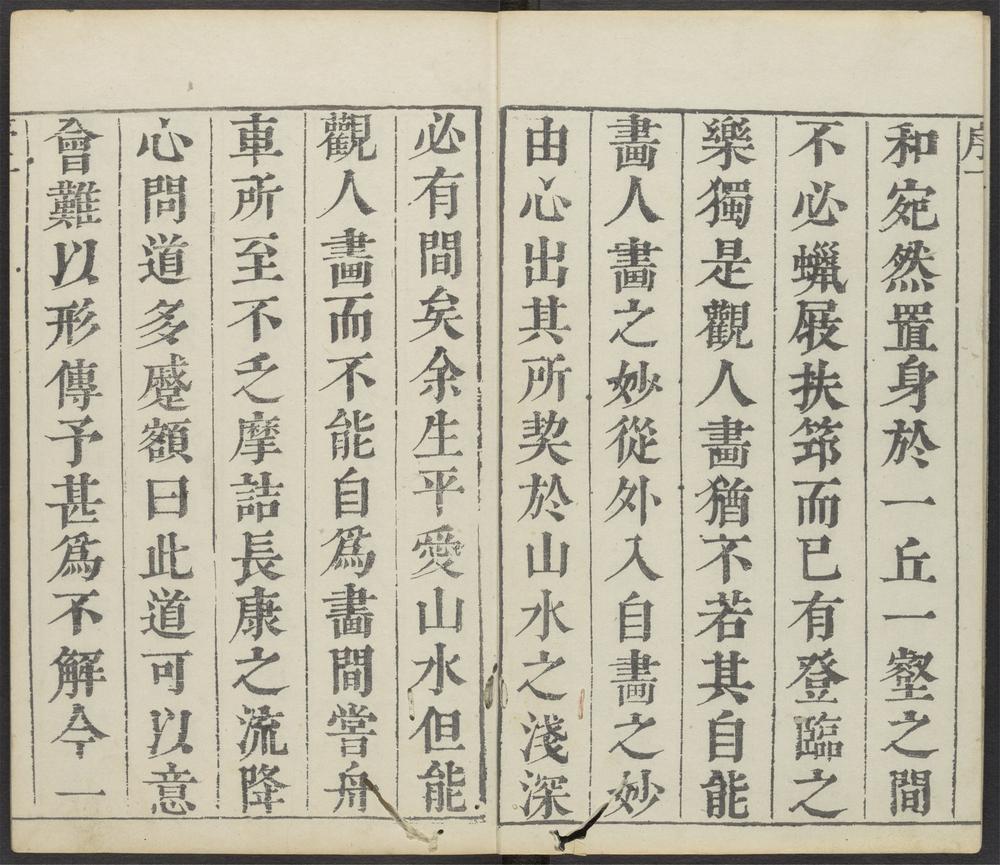 序
和宛然置身於一丘一壑之間
不必蠟屐扶筇而已有登臨之
樂獨是觀人畫猶不若其自能
畫人畫之妙從外入自畫之妙
由心出其所契於山水之淺深
必有間矣余生平愛山水但能
觀人畫而不能自為畫間嘗舟
車所至不乏摩詰長康之流降
心問道多蹙額曰此道可以意
會難以形傳予甚為不解今一